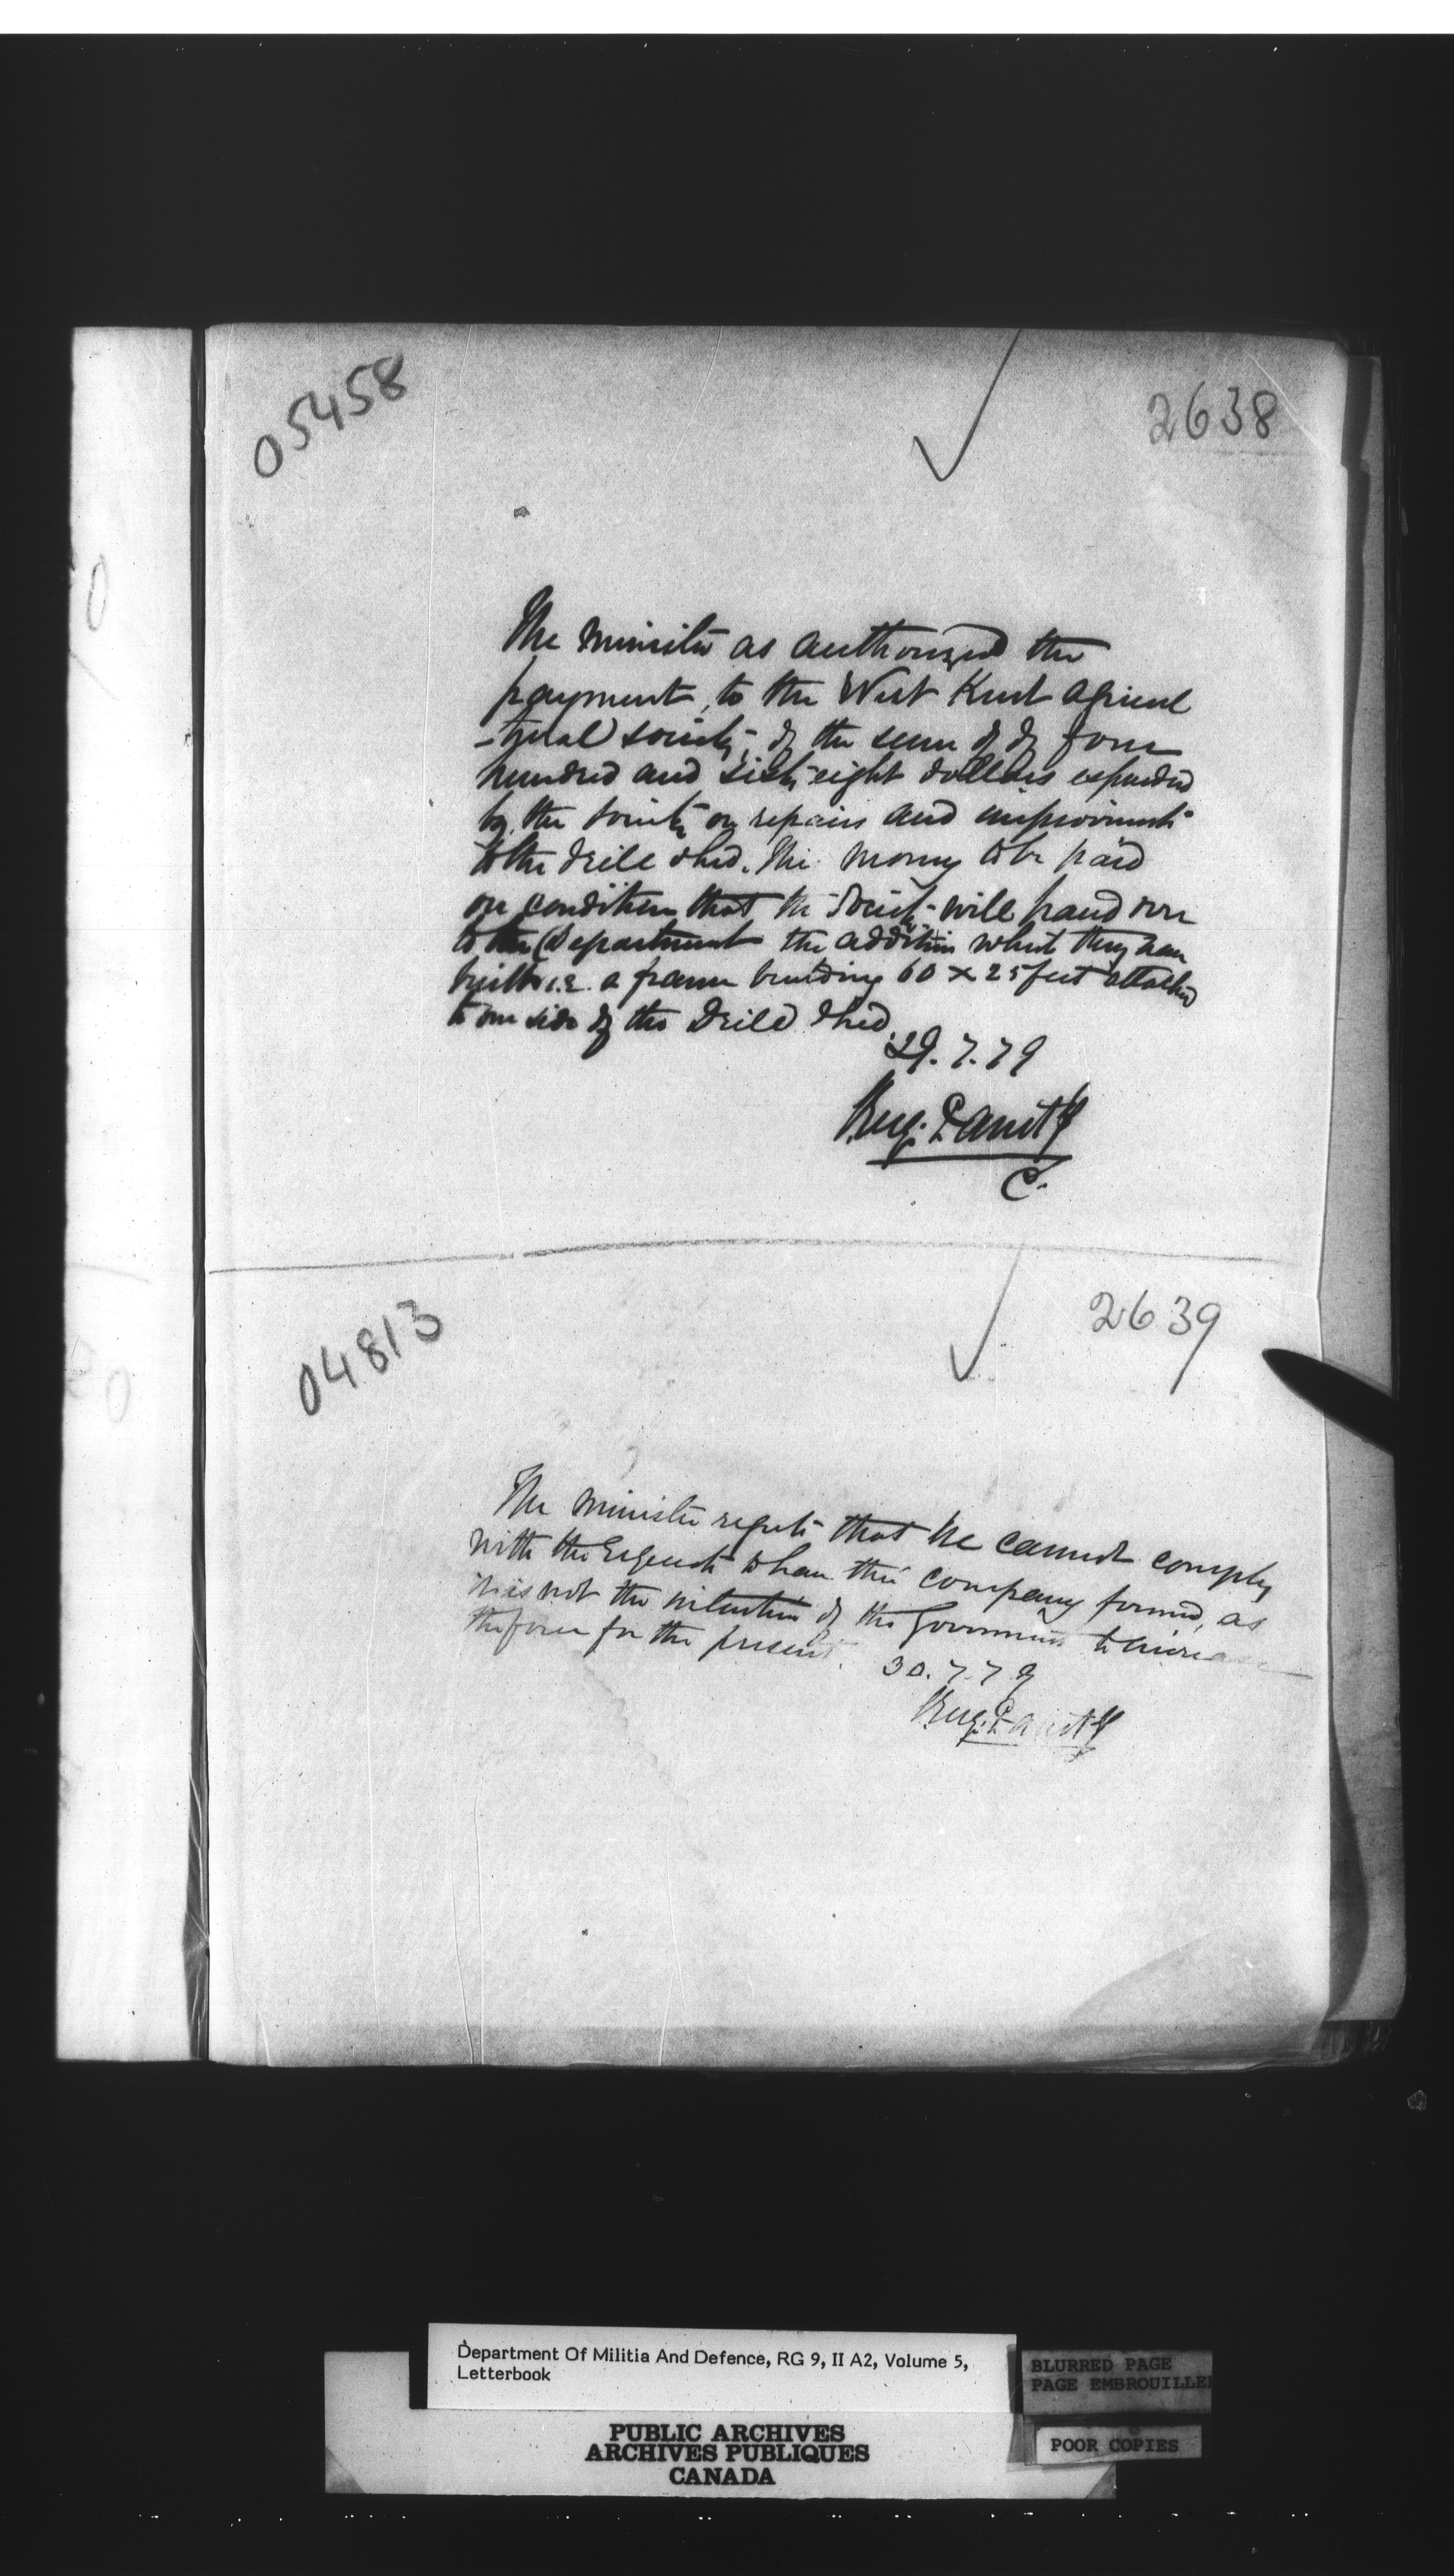 05458
2638
The Minister as authorized the
payment, to the West Kent Agricul
-tural Society, of the sum of of four
hundred and sixty eight dollars expended
by the Society on repairs and improvements
to the drill shed. The money to be paid
on condition that the Society will hand over
to the Department the addition which they have
built i.e. a frame building 60 x 25 feet attached
to one side of the Drill Shed.
29.7.79
Eug. Panet
C.
04813
2639
The Minister regrets that he cannot comply
with the request to have this company formed, as
it is not the intention of the Government to increase
the force for the present.
30.7.79
Eug. Panet
Department Of Militia And Defence, RG 9, II A2, Volume 5,
Letterbook
BLURRED PAGE
PAGE EMBROUILLEE
POOR COPIES
PUBLIC ARCHIVES
ARCHIVES PUBLIQUES
CANADA